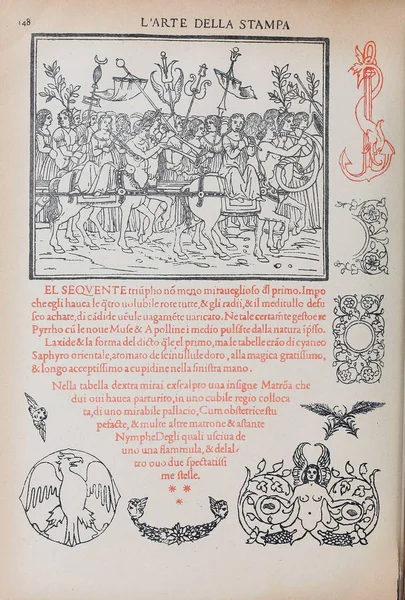 148
L'ARTE DELLA STAMPA
EL SEQVENTE triũpho nõ meno miraueglioso dl primo. Impo
che egli hauea le q̃tro uolubile rote tutte, & gli radii, & il meditullo defu
sco achate, di cãdide uẽule uagamẽte uaricato. Ne tale certamẽ gestoe re
Pyrrho cũ le noue Muse & Apolline ĩ medio pulsãte dalla natura ĩpsso.
Laxide & la forma del dicto q̃le el primo, ma le tabelle erão di cyaneo
Saphyro orientale, atomato de scintilule doro, alla magica gratissimo,
& longo acceptissimo a cupidine nella sinistra mano.
Nella tabella dextra mirai exscalpto una insigne Matrõa che
dui oui hauea parturito, in uno cubile regio colloca
ta, di uno mirabile pallacio, Cum obstetrice stu
pefacte, & multe altre matrone & astante
Nymphe Degli quali usciua de
uno una flammula, & delal-
tro ouo due spectatissi
me stelle.
* *
*